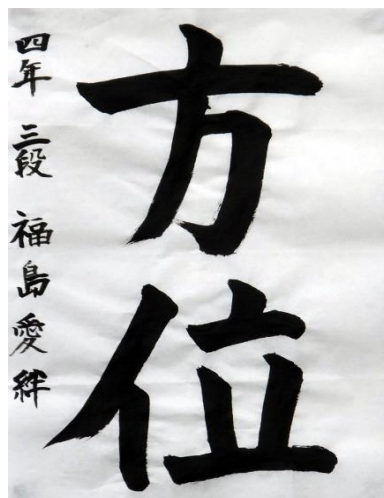 方位
四年 三段 福島愛絆